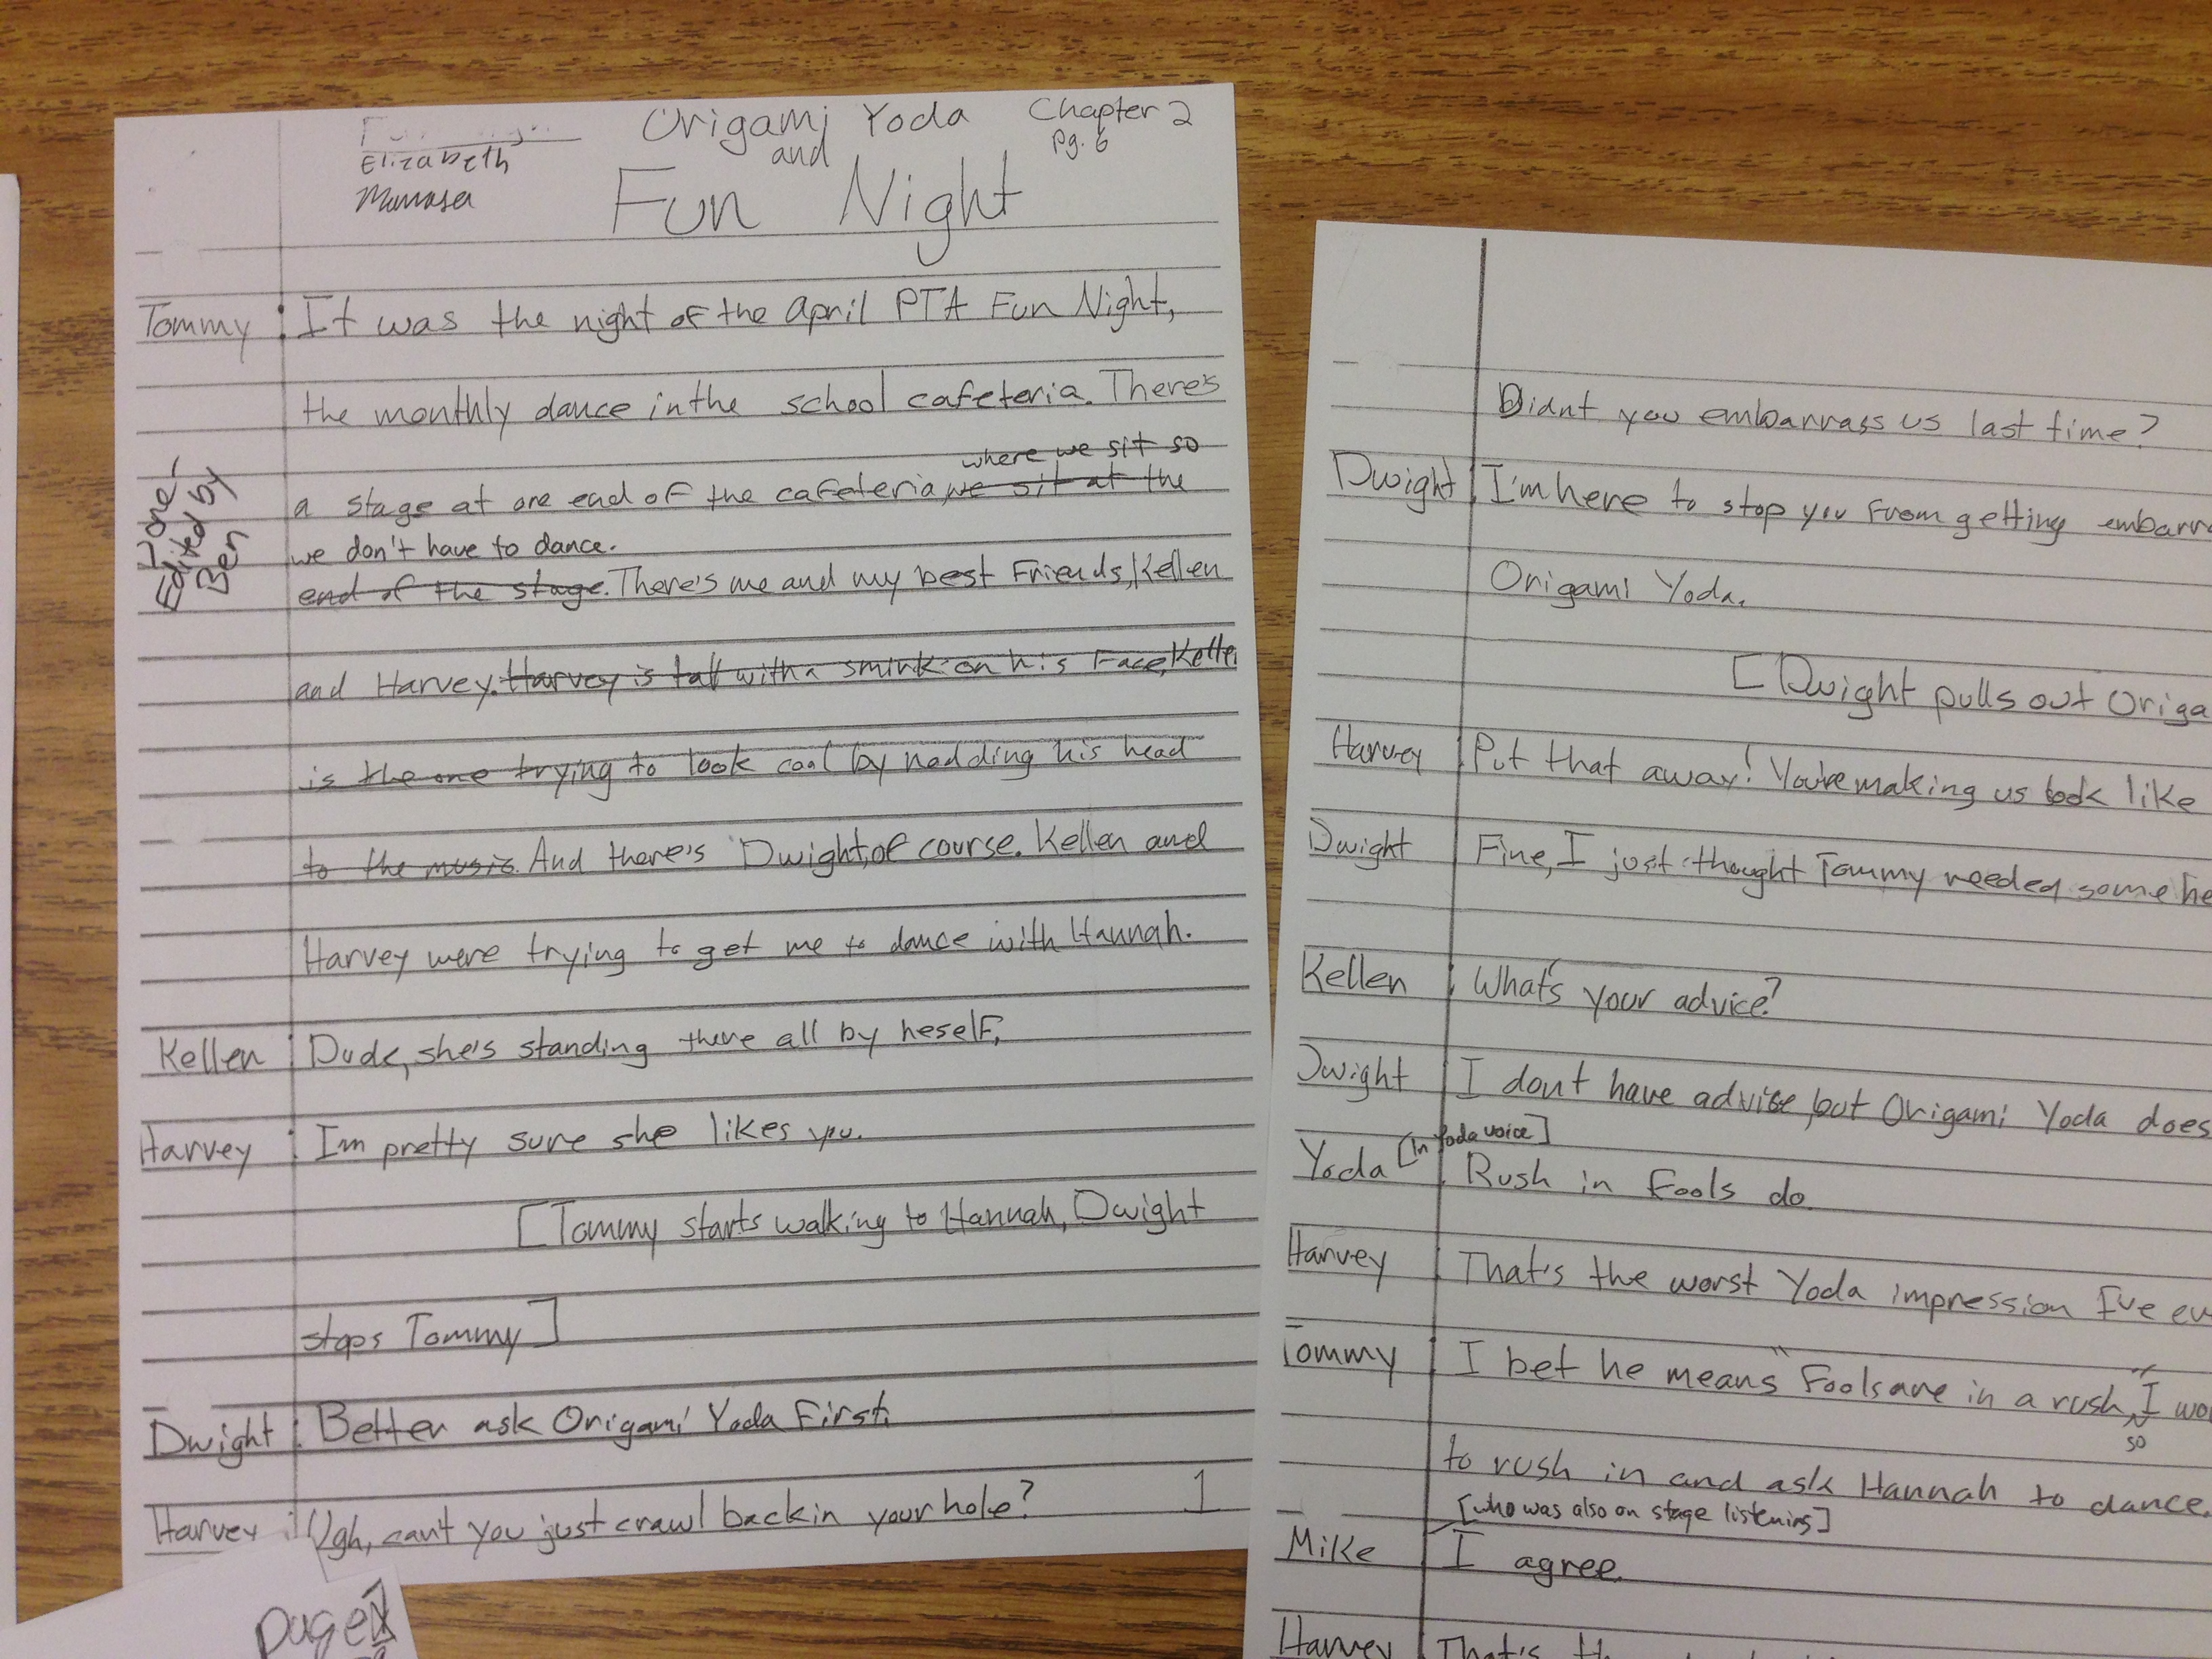 Elizabeth
Manasa
Origami Yoda
and
Fun Night
Chapter 2
pg. 6
Tommy : It was the night of the April PTA Fun Night,
the monthly dance in the school cafeteria. There's
where we sit so
a stage at one end of the cafeteria, we sit at the
we don't have to dance.
end of the stage. There's me and my best friends, Kellen
and Harvey. Harvey is tall with a smirk on his face, Kellen
is the one trying to look cool by nodding his head
to the music. And there's Dwight, of course. Kellen and
Harvey were trying to get me to dance with Hannah.
Kellen : Dude, she's standing there all by heself.
Harvey : Im pretty sure she likes you.
[Tommy starts walking to Hannah, Dwight
stops Tommy]
Dwight : Better ask Origami Yoda First.
Harvey : Ugh, can't you just crawl back in your hole?
page
Didnt you embarrass us last time?
Dwight : I'm here to stop you from getting embarr
Origami Yoda.
[Dwight pulls out Origa
Harvey : Put that away! You're making us look like
Dwight Fine, I just thought Tommy needed some he
Kellen : What's your advice?
Dwight : I don't have advise, but Origami Yoda does
[in Yoda voice]
Yoda : Rush in fools do
Harvey : That's the worst Yoda impression I've ev
Tommy : I bet he means "Fools are in a rush," I wo
so
to rush in and ask Hannah to dance.
[who was also on stage listening]
Mike : I agree.
Harvey : That's th